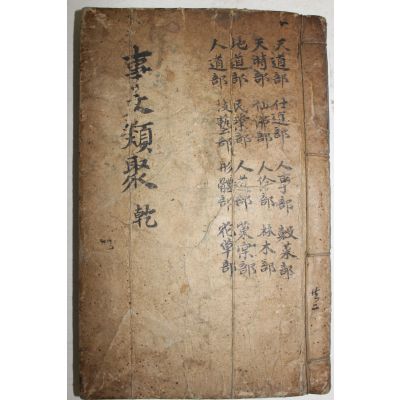 天道部 仕進部 人事部 穀菜部
天時部 仙佛部 人倫部 林木部
地道部 民業部 人道部 菓宗部
人道部 技藝部 形體部 花草部
事文類聚 乾
共二